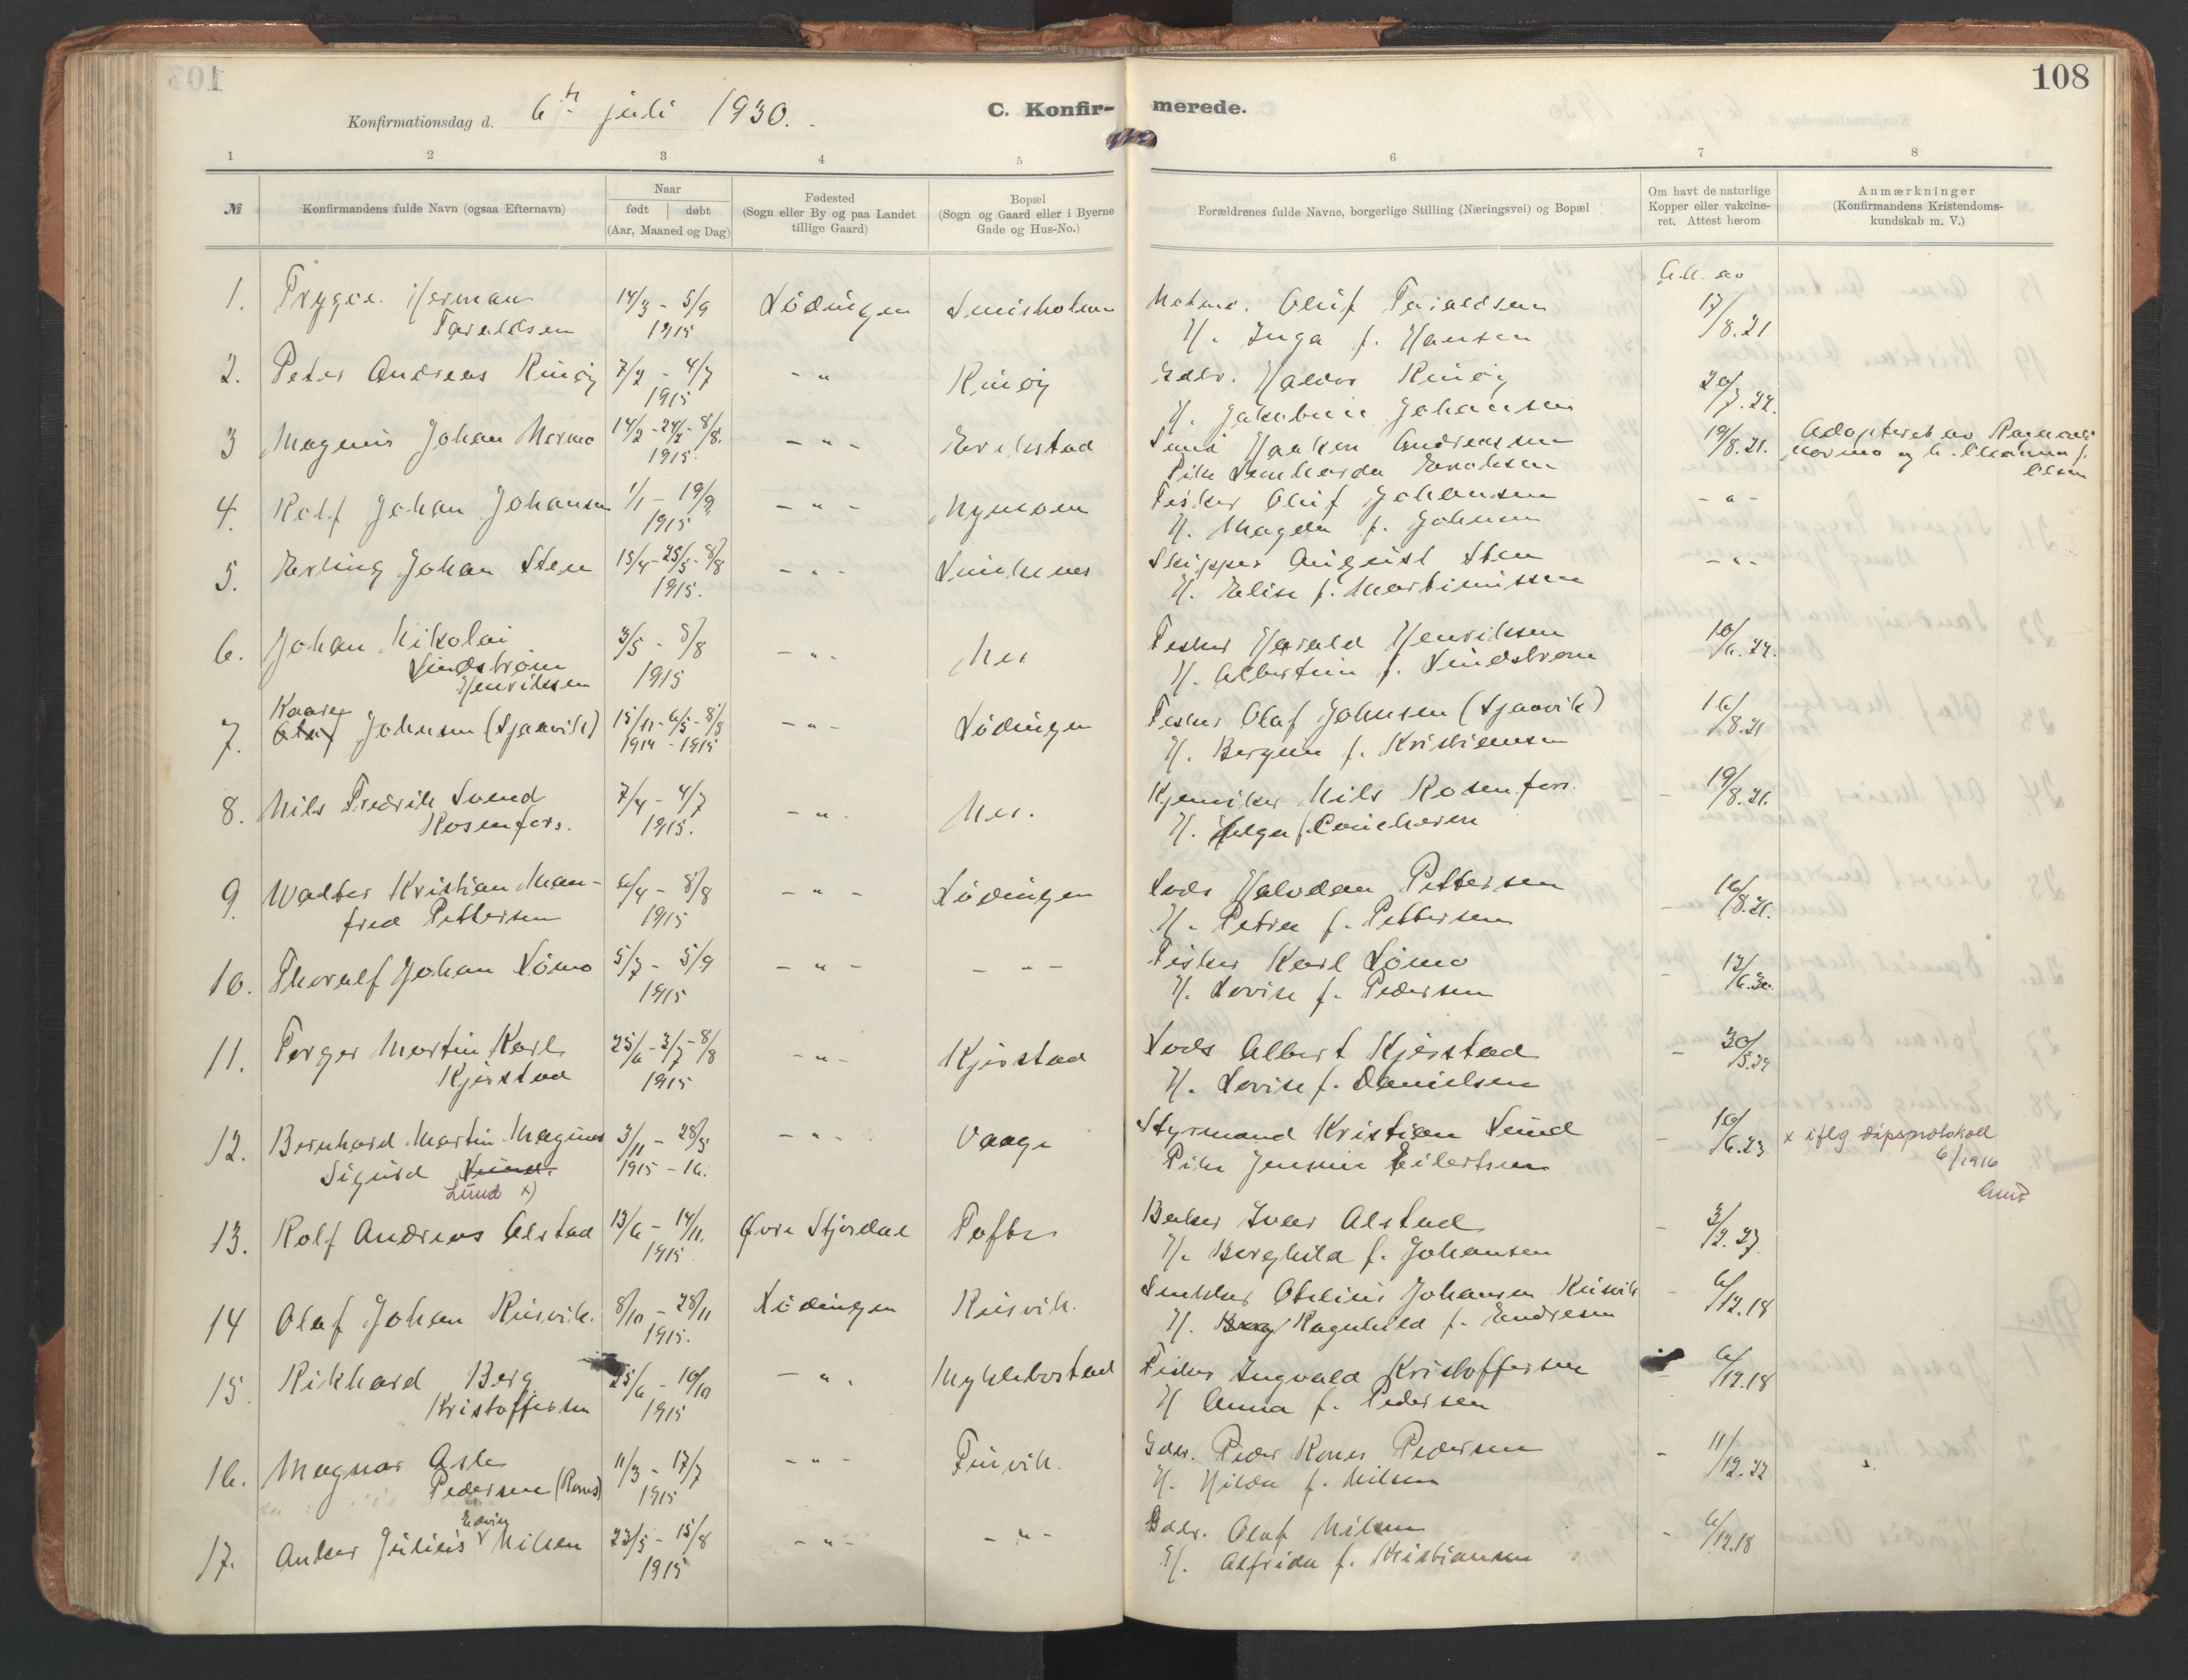 108
Konfirmationsdag d. 6te juli 1930.
C. Konfir-
merede.
1 2 3 4 5 6 7 8
№
Konfirmandens fulde Navn (ogsaa Efternavn)
Naar
født | døbt
(Aar, Maaned og Dag)
Fødested
(Sogn eller By og paa Landet
tillige Gaard)
Bopæl
(Sogn og Gaard eller i Byerne
Gade og Hus-No.)
Forældrenes fulde Navne, borgerlige Stilling (Næringsvei) og Bopæl
Om havt de naturlige
Kopper eller vakcine-
ret. Attest herom
Anmærkninger
(Konfirmandens Kristendoms-
kundskab m. V.)
1. Trygve Herman 14/3 - 5/9 Lødingen Oluf Taraldsen 17/8.21
Taraldsen 1915 H. Inga f. Hansen
2. Peter Andreas Rinøy 7/2 - 4/7 - " Rinøy Gdbr. Haldor Rinøy 20/7.22.
1915 H. Jakobine Johansen
3 Magnus Johan Mormo 14/2 - 24/2 - 8/8. - " - Erikstad Haakon Andreassen 19/8.21. Adopteret av
1915. Pike Eriksen Olsen
4. Rolf Johan Johansen 1/1 - 19/9 - " - Fisker Oluf Johansen - " -
1915 H. Magda f. Johnsen
5. Erling Johan Sten 15/4 - 25/5 - 8/8 - " - Skipper August Sten - " -
1915. H. Elise f. Martinussen
6. Johan Nikolai 3/5 - 8/8 - " - Nes Fisker Harald Henriksen 10/6.22.
Lindstrøm H. Albertine f. Lindstrøm
Henriksen 1915
Kaare
7. Olaf Johnsen (Sjaavik) 15/11 - 6/5 - 8/8 - " - Lødingen Fisker Olaf Johnsen (Sjaavik) 16/8.21
1914 - 1915 H. Bergine f. Kristiansen
8. Nils Fredrik Svend 7/4 - 4/7 - " - Nes. Nils Rosenfors. - 19/8.21.
Rosenfors. 1915. H. Helga f.
9. Walter Kristian Man- 6/4 - 8/8 - " - Lødingen Lods Halvdan Pettersen - 16/8.21.
fred Pettersen 1915 H. Petra f. Pettersen
10. Thoralf Johan Lømo 5/7 - 5/9 - " - - " - Fisker Karl Lømo - 12/6.30.
1915 H. Lovise f. Pedersen
11. Torger Martin Karl 25/6 - 3/7 - 8/8 - " - Kjerstad Lods Albert Kjerstad - 30/5.24
Kjerstad 1915 H. Lovise f. Danielsen
12. Bernhard Martin Magnus 3/11 - 28/5 - " - Vaage Styrmand Kristian Lund - 10/6.23 x iflg. dåpsprotokoll
Sigurd Lund. 1915 - 16. Pike Jensine Eilertsen 6/1916
Lund x)
13. Rolf Andreas Alstad 13/6 - 14/11. Øvre Stjørdal Tofte Baker Ivar Alstad - 3/2.27
1915 H. Borghild f. Johansen
14 Olaf Johan Rusvik. 8/10 - 28/11 Lødingen Rusvik. Johansen Rusvik - 6/12.18
1915. H. Ragnhild f. Endresen
15. Rikhard Berg 25/6 - 10/10 - " - Myklebostad Fisker Ingvald Kristoffersen - 6/12.18
Kristoffersen 1915 H Anna f. Pedersen
16. Magnar Asle 11/3 - 17/7 - " - Finvik. Gdbr. Peder Rones Pedersen - 11/12.22
Pedersen (Rones) 1915 H. Hilda f. Nilsen
Edvin
17. Anker Julius Nilsen 23/5 - 15/8 - " - - " - Gdbr. Olaf Nilsen - 6/12.18
1915 H. Alfrida f. Kristiansen